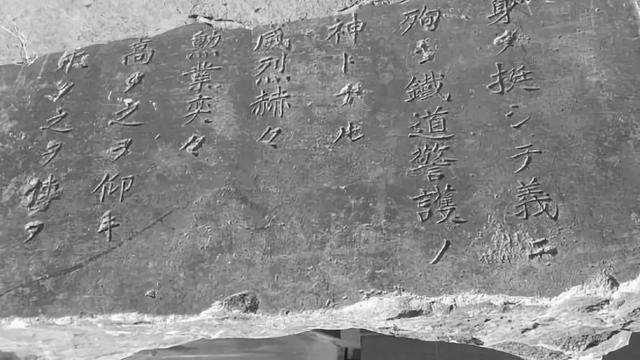 身ヲ挺シテ義ニ
殉ス鐵道警護ノ
神トナル
威烈赫々
勲業奕々
高ク之ヲ仰キ
永ク之ヲ傳フ